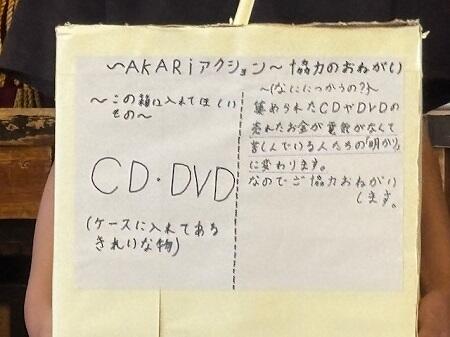 ～AKARiアクション～ 協力のおねがい
～この箱に入れてほしい
もの～
CD・DVD
(ケースに入れてある
きれいな物)
～(なにについかうの?)～
集められたCDやDVDの
売れたお金が電気がなくて
苦しんでいる人たちの「明かり」
に変わります。
なのでご協力おねがい
します。